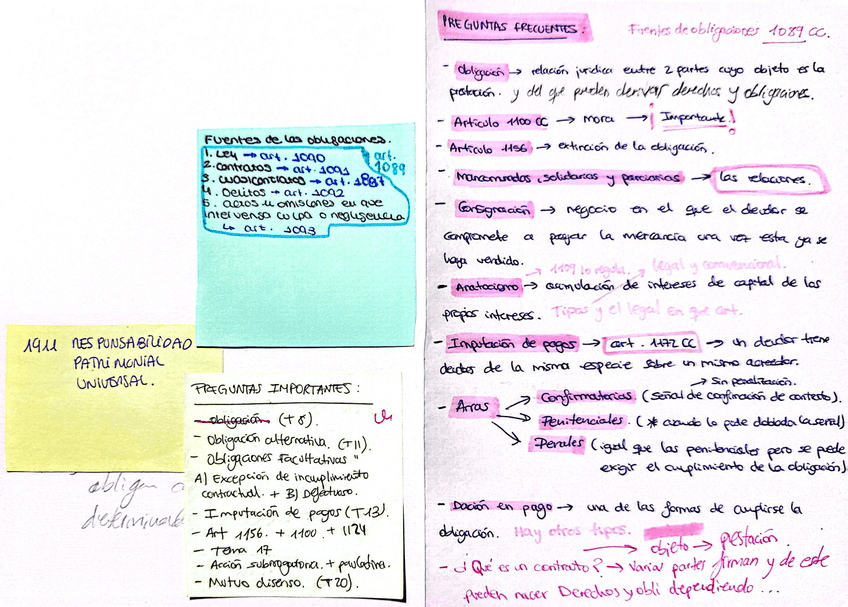 Fuentes de las obligaciones.
1. Ley → art. 1090
art. 1089
2. contratos → art. 1091
3. cuasicontratos → art. 1887
4. Delitos → art. 1092
5. actos u omisiones en que
intervenga culpa o negligencia
↳ art. 1093
1911 RESPONSABILIDAD
PATRIMONIAL
UNIVERSAL.
obligan
determinada
PREGUNTAS IMPORTANTES:
- obligación (T8).
- Obligación alternativa. (T11).
- Obligaciones Facultativas "
A) Excepción de incumplimiento
contractual. + B) Defectuoso.
- Imputación de pagos (T13).
- Art 1156. + 1100. + 1124
- Tema 17
- Acción subrogatoria. + pauliana.
- Mutuo disenso. (T20).
PREGUNTAS FRECUENTES:
Fuentes de obligaciones 1089 CC.
- Obligación → relación jurídica entre 2 partes cuyo objeto es la
prestación. y del que pueden derivar derechos y obligaciones.
- Artículo 1100 CC → mora → ¡Importante!
- Artículo 1156 → extinción de la obligación.
- Mancomunadas, solidarias y parciarias → las relaciones.
- Consignación → negocio en el que el deudor se
compromete a pagar la mercancía una vez esta ya se
haya vendido.
→ 1109 lo regula. → legal y convencional.
- Anatocismo → acumulación de intereses de capital de los
propios intereses. Tipos y el legal en que art.
- Imputación de pagos → art. 1172 CC → un deudor tiene
deudas de la misma especie sobre un mismo acreedor.
→ Sin penalización.
- Arras → Confirmatorias (señal de confirmación de contrato).
→ Penitenciales. (* cuando lo pide doblada la señal)
→ Penales (igual que las penitenciales pero se puede
exigir el cumplimiento de la obligación)
- Dación en pago → una de las formas de cumplirse la
obligación. Hay otros tipos.
→ objeto → prestación.
- ¿Qué es un contrato? → Varias partes firman y de este
pueden nacer Derechos y obli dependiendo ...